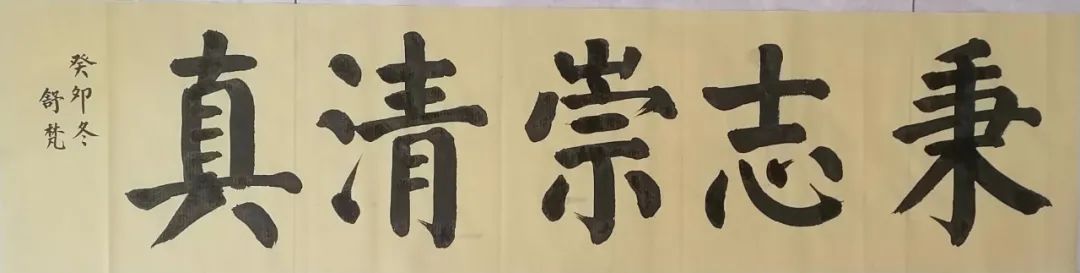 秉志崇清真
癸卯冬
舒梵